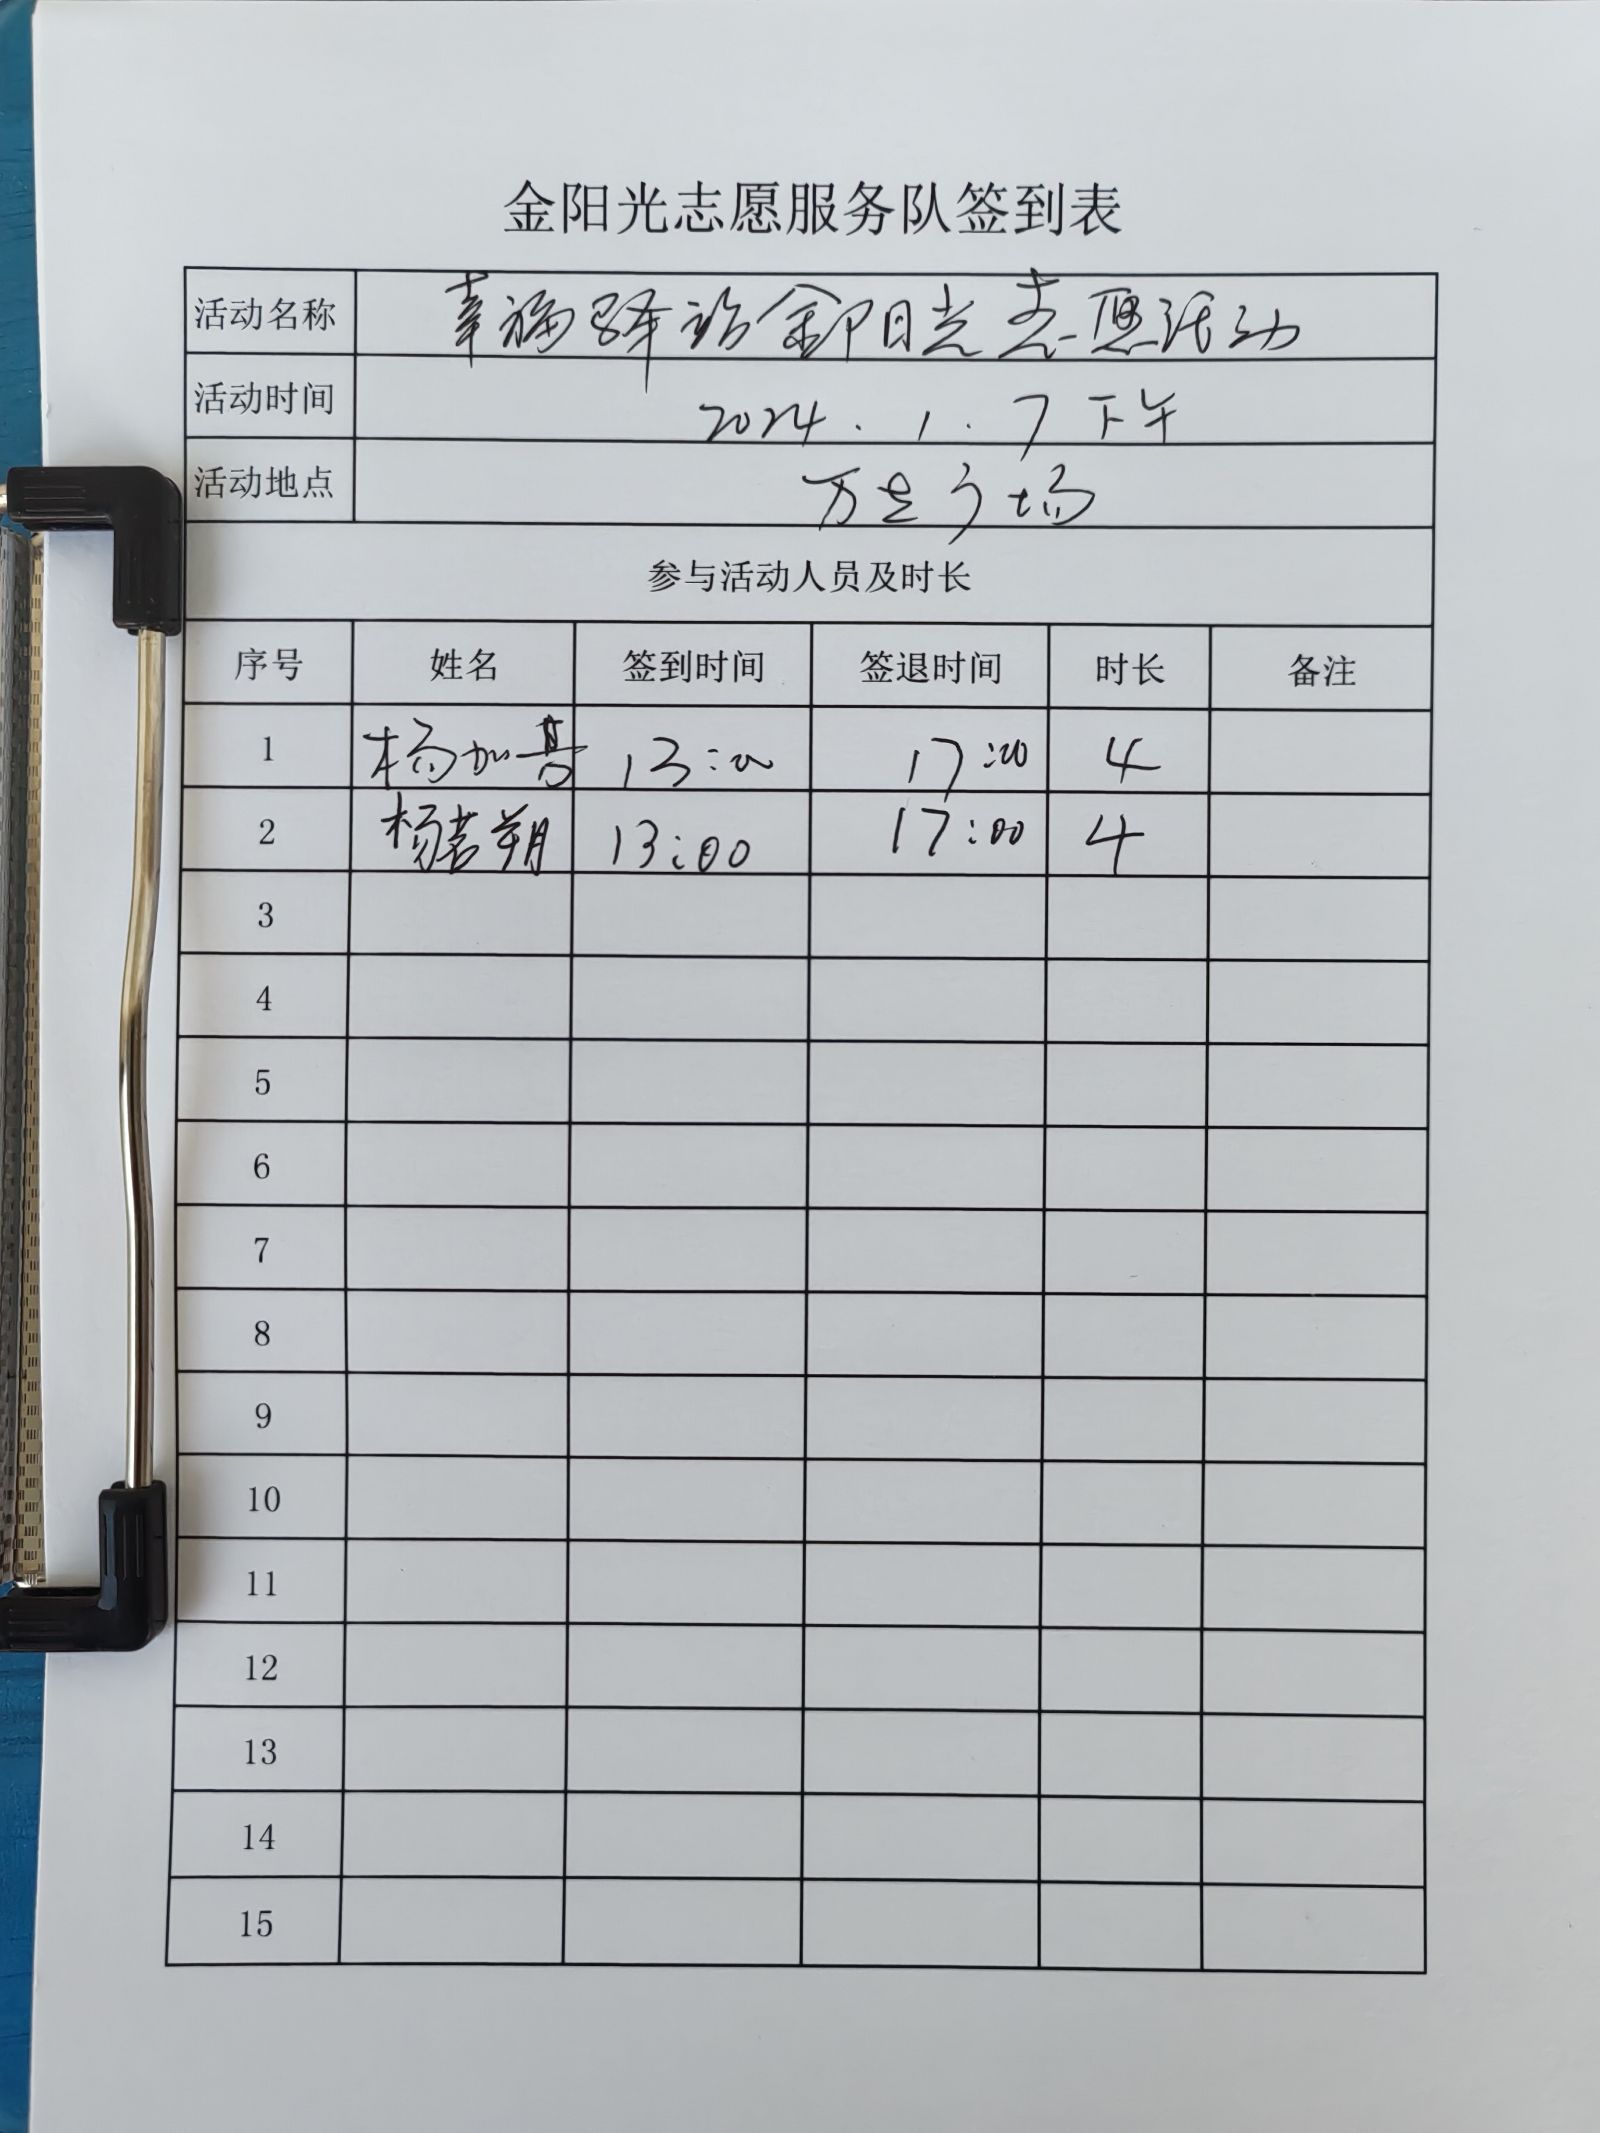 金阳光志愿服务队签到表
活动名称 幸福驿站金阳光志愿活动
活动时间 2024.1.7下午
活动地点 万达广场
参与活动人员及时长
序号 姓名 签到时间 签退时间 时长 备注
1 杨加 13:00 17:00 4
2 杨若朔 13:00 17:00 4
3
4
5
6
7
8
9
10
11
12
13
14
15